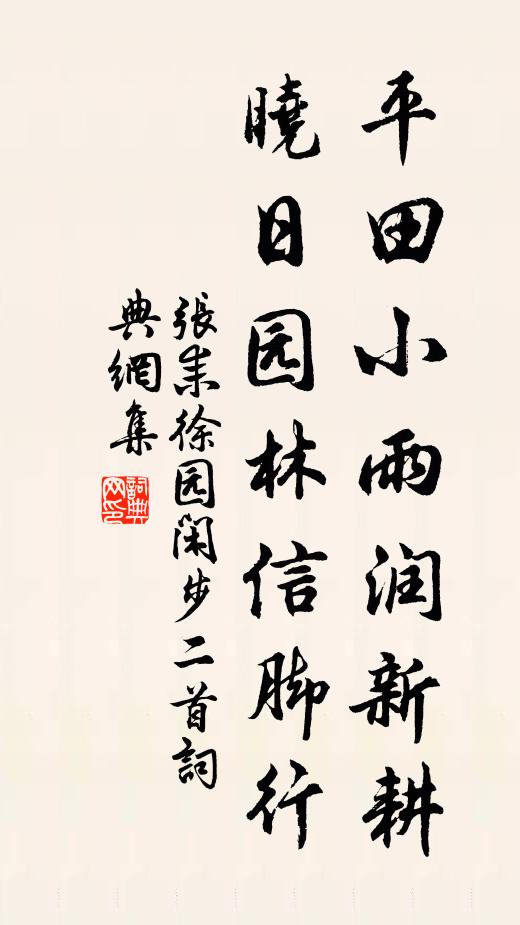 平田小雨润新耕
曉日园林信脚行
張耒徐园闲步二首詞
典網集
詞典网印